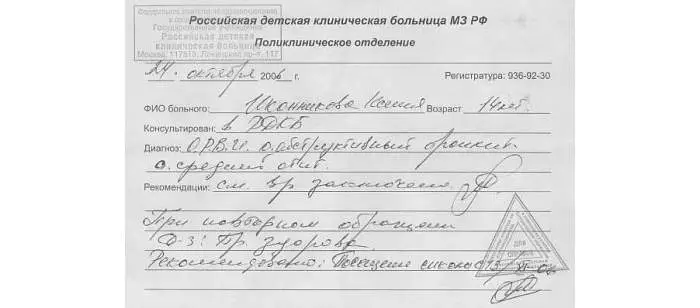 Федеральное агентство по здравоохранению
Государственное учреждение
Российская детская
клиническая больница
Москва, 117513, Ленинский пр-т, 117
Российская детская клиническая больница МЗ РФ
Поликлиническое отделение
24. октября 2006 г.
Регистратура: 936-92-30
ФИО больного: Иконникова Ксения Возраст 14 лет.
Консультирован: в РДКБ
Диагноз: О.Р.В.И. о. обструктивный бронхит.
о. средний отит.
Рекомендации: см. вр. заключение.
При повторном обращении
Д-з: Пр. здорова.
Рекомендовано: Посещение школы с 13/XI-06
ДЛЯ